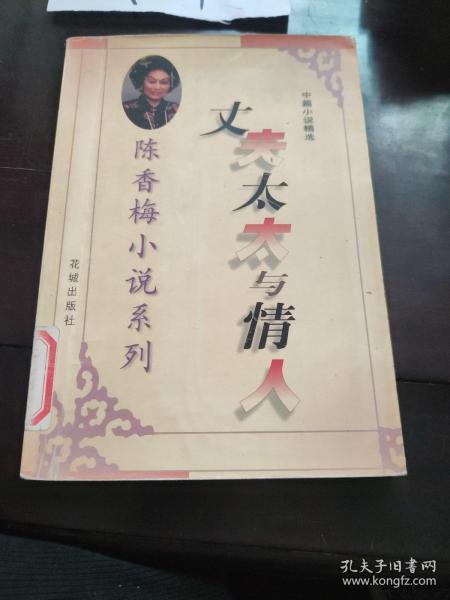 中篇小说精选
丈夫太太与情人
陈香梅小说系列
花城出版社
孔夫子旧书网
www.kongfz.com